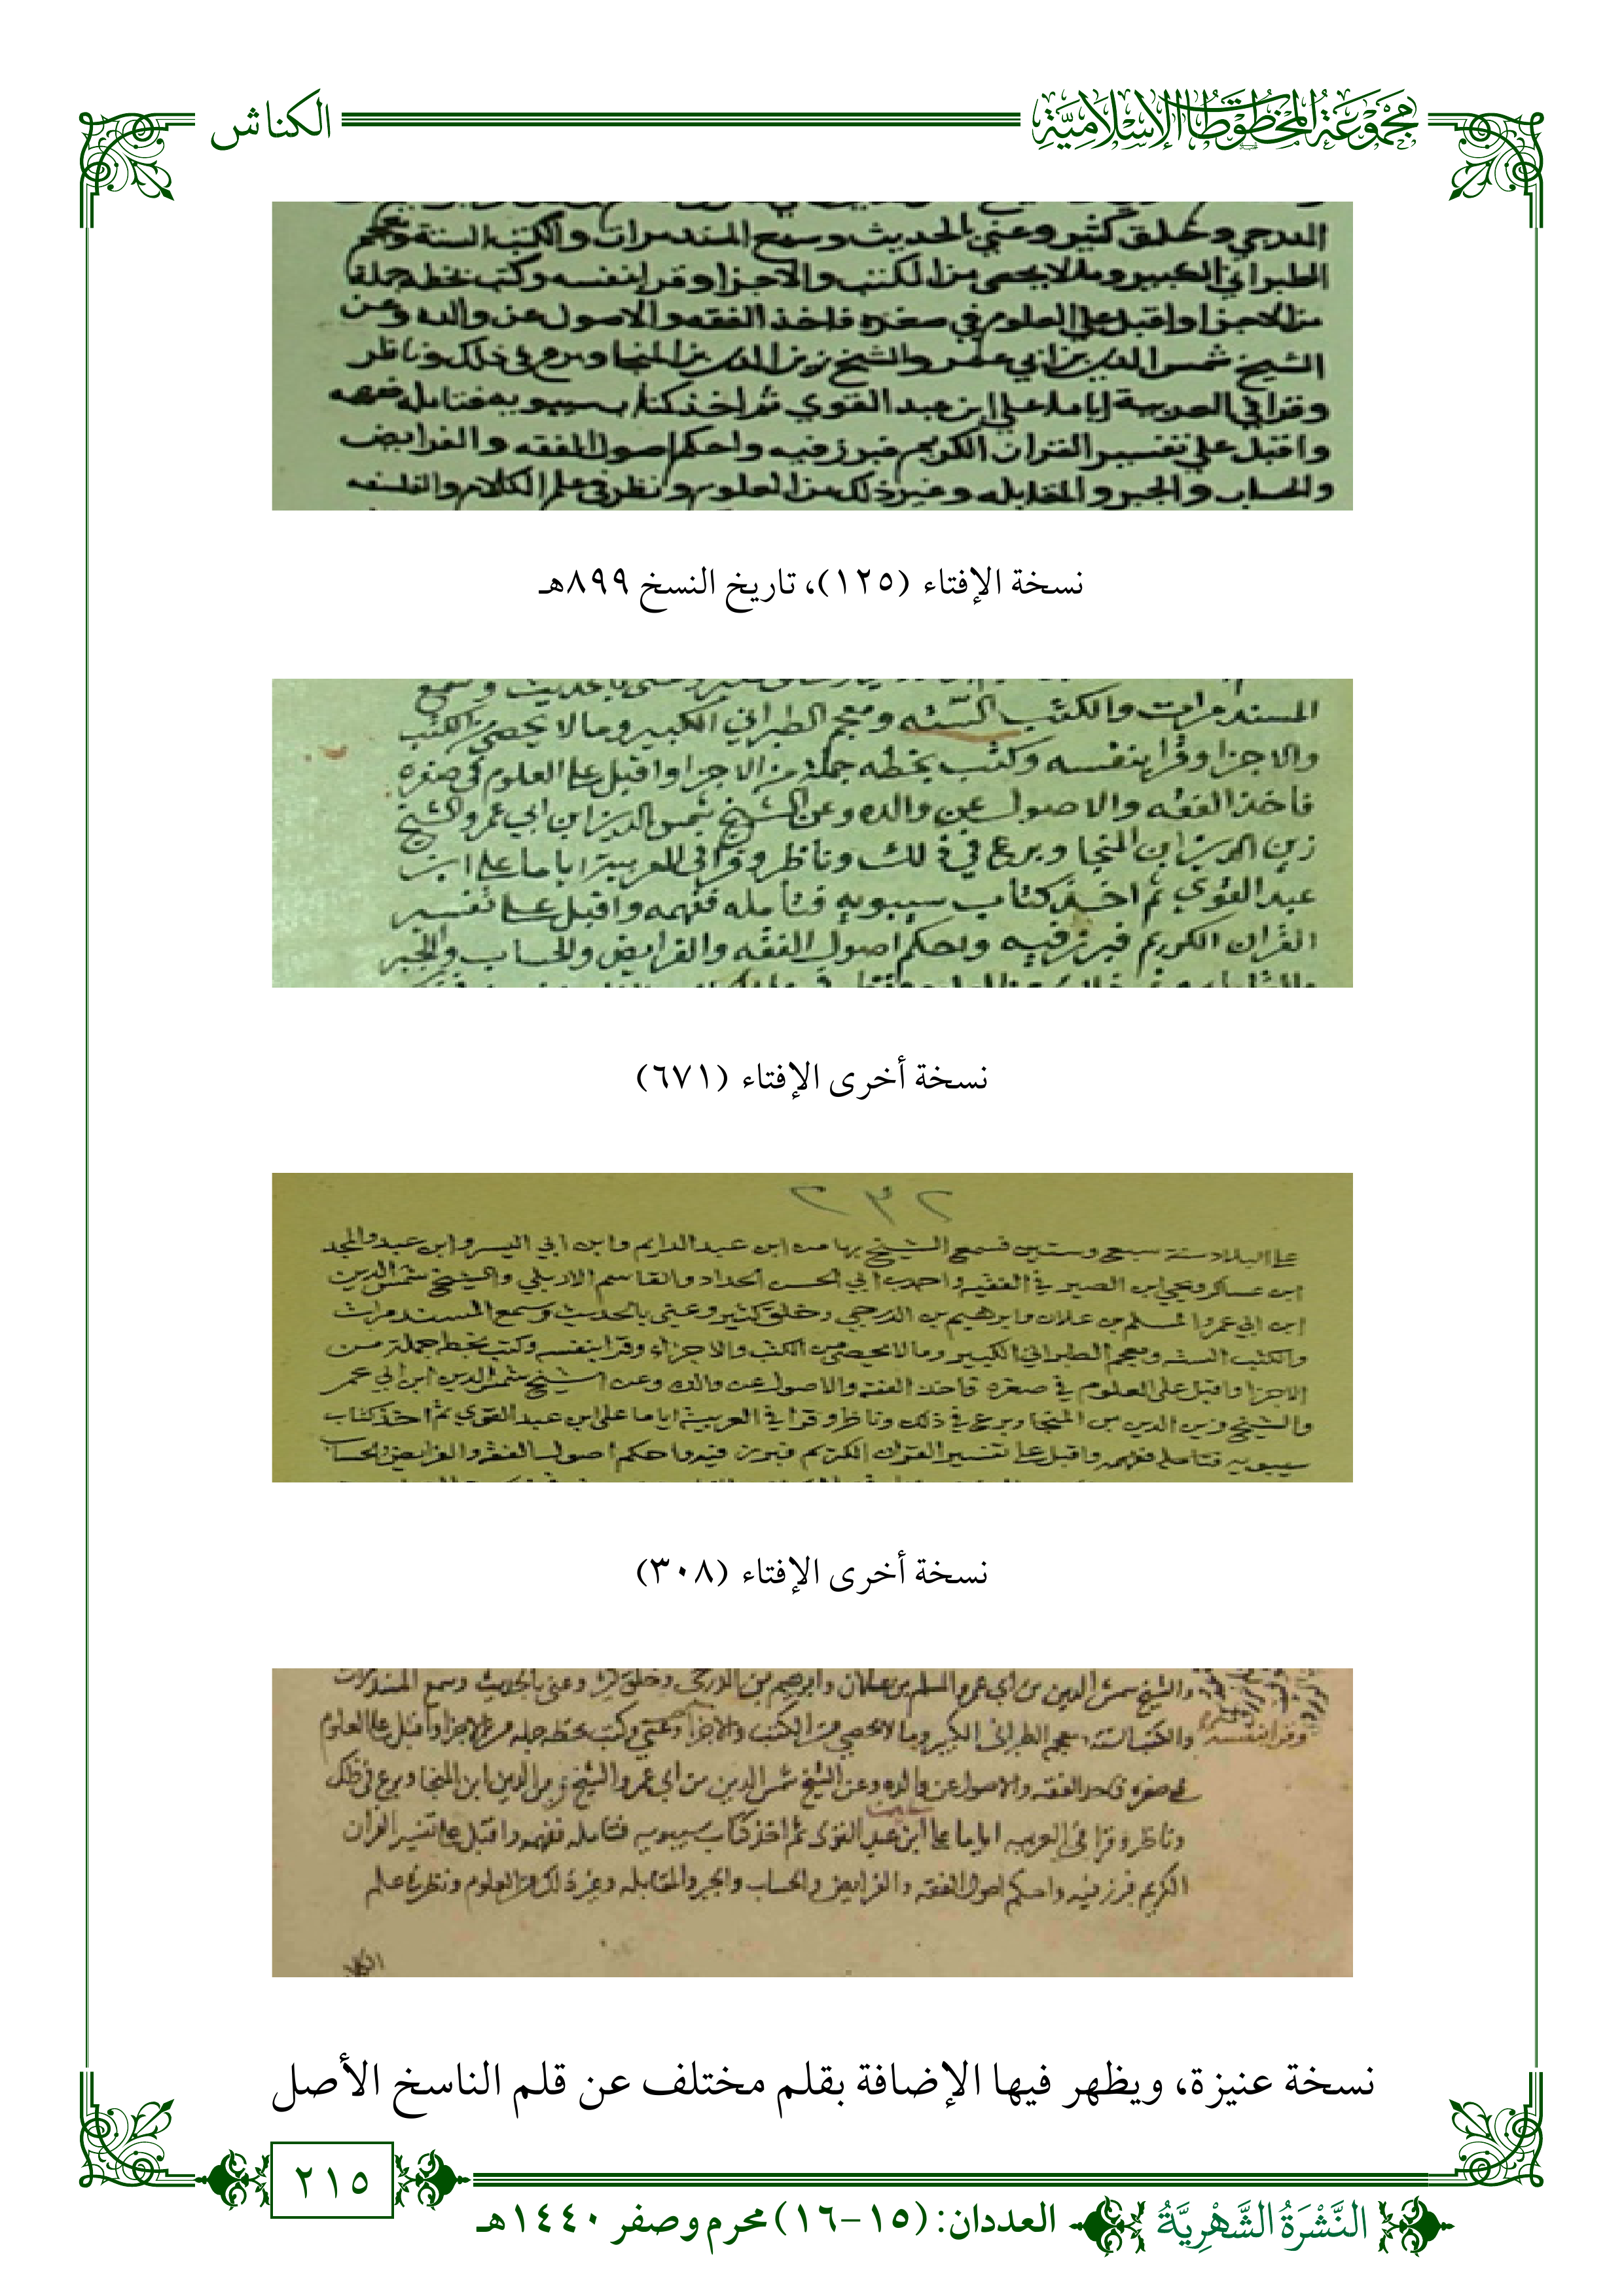 مجموعة المخطوطات الإسلامية
الكناش
الدرجي وخلق كثير وعني بالحديث وسمع المسند مرات والكتب الستة ومعجم
الطبراني الكبير وما لا يحصى من الكتب والاجزا وقرا بنفسه وكتب بخطه جملة
من الاجزا واقبل على العلوم في صغره فاخذ الفقه والاصول عن والده وعن
الشيخ شمس الدين بن ابي عمر والشيخ زين الدين بن المنجا وبرع في ذلك وناظر
وقرا في العربية اياما على ابن عبد القوي ثم اخذ كتاب سيبويه فتامله ففهمه
واقبل على تفسير القران الكريم فبرز فيه واحكم اصول الفقه والفرايض
والحساب والجبر والمقابله وغير ذلك من العلوم ونظر في علم الكلام والفلسفه
نسخة الإفتاء (١٢٥)، تاريخ النسخ ٨٩٩هـ
المسند مرات والكتب السته ومعجم الطبراني الكبير وما لا يحصى من الكتب
والاجزا وقرا بنفسه وكتب بخطه جملة من الاجزا واقبل على العلوم في صغره
فاخذ الفقه والاصول عن والده وعن الشيخ شمس الدين ابن ابي عمر والشيخ
زين الدين ابن المنجا وبرع في ذلك وناظر وقرا في العربية اياما على ابن
عبد القوي ثم اخذ كتاب سيبويه فتأمله ففهمه واقبل على تفسير
القران الكريم فبرز فيه واحكم اصول الفقه والفرايض والحساب والجبر
نسخة أخرى الإفتاء (٦٧١)
٢٣٢
على البلاد سنة سبع وستين فسمع الشيخ بها من ابن عبد الدايم وابن ابي اليسر وابن عبد والمجد
ابن عساكر ويحي ابن الصيرفي الفقيه واحمد ابن ابي الحداد والقاسم الاربلي والشيخ شمس الدين
ابن ابي عمر والمسلم بن علان وابرهيم بن الدرجي وخلق كثير وعني بالحديث وسمع المسند مرات
والكتب السته ومعجم الطبراني الكبير وما لا يحصى من الكتب والاجزاء وقرا بنفسه وكتب بخطه جملة من
الاجزا واقبل على العلوم في صغره فاخذ الفقه والاصول عن والده وعن الشيخ شمس الدين ابن ابي عمر
والشيخ زين الدين بن المنجا وبرع في ذلك وناظر وقرا في العربية اياما على ابن عبد القوي ثم اخذ كتاب
سيبويه فتامله ففهمه واقبل على تفسير القران الكريم فبرز فيه واحكم اصول الفقه والفرايض والحساب
نسخة أخرى الإفتاء (٣٠٨)
والشيخ شمس الدين بن ابي عمر والمسلم بن علان وابرهيم بن الدرجي وخلق كثير وعني بالحديث وسمع المسند مرات
وقرا بنفسه والكتب الستة ومعجم الطبراني الكبير وما لا يحصى من الكتب والاجزا وكتب بخطه جمله من الاجزا واقبل على العلوم
في صغره فاخذ الفقه والاصول عن والده وعن الشيخ شمس الدين بن ابي عمر والشيخ زين الدين ابن المنجا وبرع في ذلك
وناظر وقرا في العربيه اياما على ابن عبد القوي ثم اخذ كتاب سيبويه فتامله ففهمه واقبل على تفسير القران
الكريم فبرز فيه واحكم اصول الفقه والفرايض والحساب والجبر والمقابله وغير ذلك من العلوم ونظر في علم
نسخة عنيزة، ويظهر فيها الإضافة بقلم مختلف عن قلم الناسخ الأصل
٢١٥
النَّشْرَةُ الشَّهْرِيَّةُ العددان: (١٥-١٦) محرم وصفر ١٤٤٠هـ